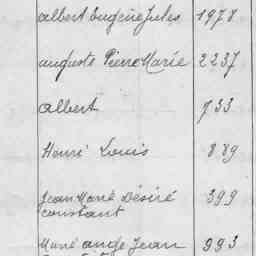 Albert Eugène Jules 1978
Auguste Pierre Marie 2237
Albert 733
Henri Louis 889
Jean Marie Désiré 399
Constant
Marie Ange Jean 993